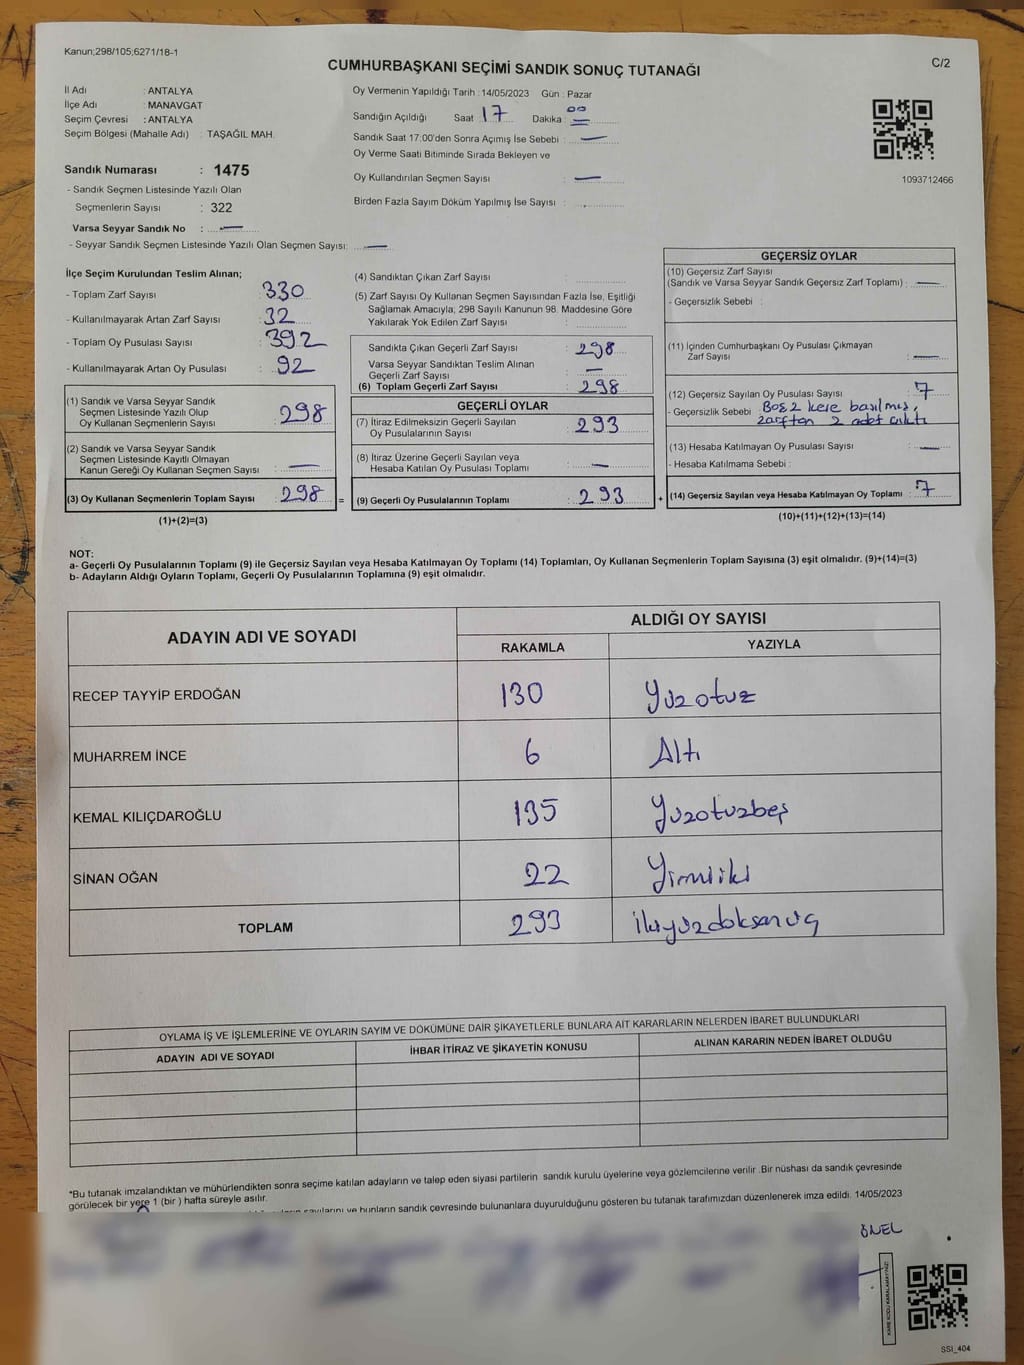 Kanun;298/105;6271/18-1
CUMHURBAŞKANI SEÇİMİ SANDIK SONUÇ TUTANAĞI
C/2
İl Adı : ANTALYA
İlçe Adı : MANAVGAT
Seçim Çevresi : ANTALYA
Seçim Bölgesi (Mahalle Adı) : TAŞAĞIL MAH.
Sandık Numarası : 1475
- Sandık Seçmen Listesinde Yazılı Olan
Seçmenlerin Sayısı : 322
Varsa Seyyar Sandık No : —
- Seyyar Sandık Seçmen Listesinde Yazılı Olan Seçmen Sayısı: —
Oy Vermenin Yapıldığı Tarih : 14/05/2023 Gün : Pazar
Sandığın Açıldığı Saat 17 Dakika : 00
Sandık Saat 17:00'den Sonra Açımış İse Sebebi : —
Oy Verme Saati Bitiminde Sırada Bekleyen ve
Oy Kullandırılan Seçmen Sayısı : —
Birden Fazla Sayım Döküm Yapılmış İse Sayısı :
1093712466
İlçe Seçim Kurulundan Teslim Alınan;
- Toplam Zarf Sayısı : 330
- Kullanılmayarak Artan Zarf Sayısı : 32
- Toplam Oy Pusulası Sayısı : 392
- Kullanılmayarak Artan Oy Pusulası : 92
(1) Sandık ve Varsa Seyyar Sandık
Seçmen Listesinde Yazılı Olup
Oy Kullanan Seçmenlerin Sayısı : 298
(2) Sandık ve Varsa Seyyar Sandık
Seçmen Listesinde Kayıtlı Olmayan
Kanun Gereği Oy Kullanan Seçmen Sayısı : —
(3) Oy Kullanan Seçmenlerin Toplam Sayısı : 298 =
(1)+(2)=(3)
(4) Sandıktan Çıkan Zarf Sayısı :
(5) Zarf Sayısı Oy Kullanan Seçmen Sayısından Fazla İse, Eşitliği
Sağlamak Amacıyla; 298 Sayılı Kanunun 98. Maddesine Göre
Yakılarak Yok Edilen Zarf Sayısı :
Sandıkta Çıkan Geçerli Zarf Sayısı : 298
Varsa Seyyar Sandıktan Teslim Alınan
Geçerli Zarf Sayısı : —
(6) Toplam Geçerli Zarf Sayısı : 298
GEÇERLİ OYLAR
(7) İtiraz Edilmeksizin Geçerli Sayılan
Oy Pusulalarının Sayısı : 293
(8) İtiraz Üzerine Geçerli Sayılan veya
Hesaba Katılan Oy Pusulası Toplamı : —
(9) Geçerli Oy Pusulalarının Toplamı : 293 +
GEÇERSİZ OYLAR
(10) Geçersiz Zarf Sayısı
(Sandık ve Varsa Seyyar Sandık Geçersiz Zarf Toplamı) : —
- Geçersizlik Sebebi :
(11) İçinden Cumhurbaşkanı Oy Pusulası Çıkmayan
Zarf Sayısı : —
(12) Geçersiz Sayılan Oy Pusulası Sayısı : 7
- Geçersizlik Sebebi : Boş 2 kere basılmış,
zarftan 2 adet çıktı
(13) Hesaba Katılmayan Oy Pusulası Sayısı : —
- Hesaba Katılmama Sebebi :
(14) Geçersiz Sayılan veya Hesaba Katılmayan Oy Toplamı : 7
(10)+(11)+(12)+(13)=(14)
NOT:
a- Geçerli Oy Pusulalarının Toplamı (9) ile Geçersiz Sayılan veya Hesaba Katılmayan Oy Toplamı (14) Toplamları, Oy Kullanan Seçmenlerin Toplam Sayısına (3) eşit olmalıdır. (9)+(14)=(3)
b- Adayların Aldığı Oyların Toplamı, Geçerli Oy Pusulalarının Toplamına (9) eşit olmalıdır.
ADAYIN ADI VE SOYADI ALDIĞI OY SAYISI
RAKAMLA YAZIYLA
RECEP TAYYİP ERDOĞAN 130 Yüzotuz
MUHARREM İNCE 6 Altı
KEMAL KILIÇDAROĞLU 135 Yüzotuzbeş
SİNAN OĞAN 22 Yirmiiki
TOPLAM 293 ikiyüzdoksanüç
OYLAMA İŞ VE İŞLEMLERİNE VE OYLARIN SAYIM VE DÖKÜMÜNE DAİR ŞİKAYETLERLE BUNLARA AİT KARARLARIN NELERDEN İBARET BULUNDUKLARI
ADAYIN ADI VE SOYADI İHBAR İTİRAZ VE ŞİKAYETİN KONUSU ALINAN KARARIN NEDEN İBARET OLDUĞU
*Bu tutanak imzalandıktan ve mühürlendikten sonra seçime katılan adayların ve talep eden siyasi partilerin sandık kurulu üyelerine veya gözlemcilerine verilir .Bir nüshası da sandık çevresinde
görülecek bir yere 1 (bir ) hafta süreyle asılır.
sayılarını ve bunların sandık çevresinde bulunanlara duyurulduğunu gösteren bu tutanak tarafımızdan düzenlenerek imza edildi. 14/05/2023
ÖNEL
KARE KODU KARALAMAYINIZ
SSI_404